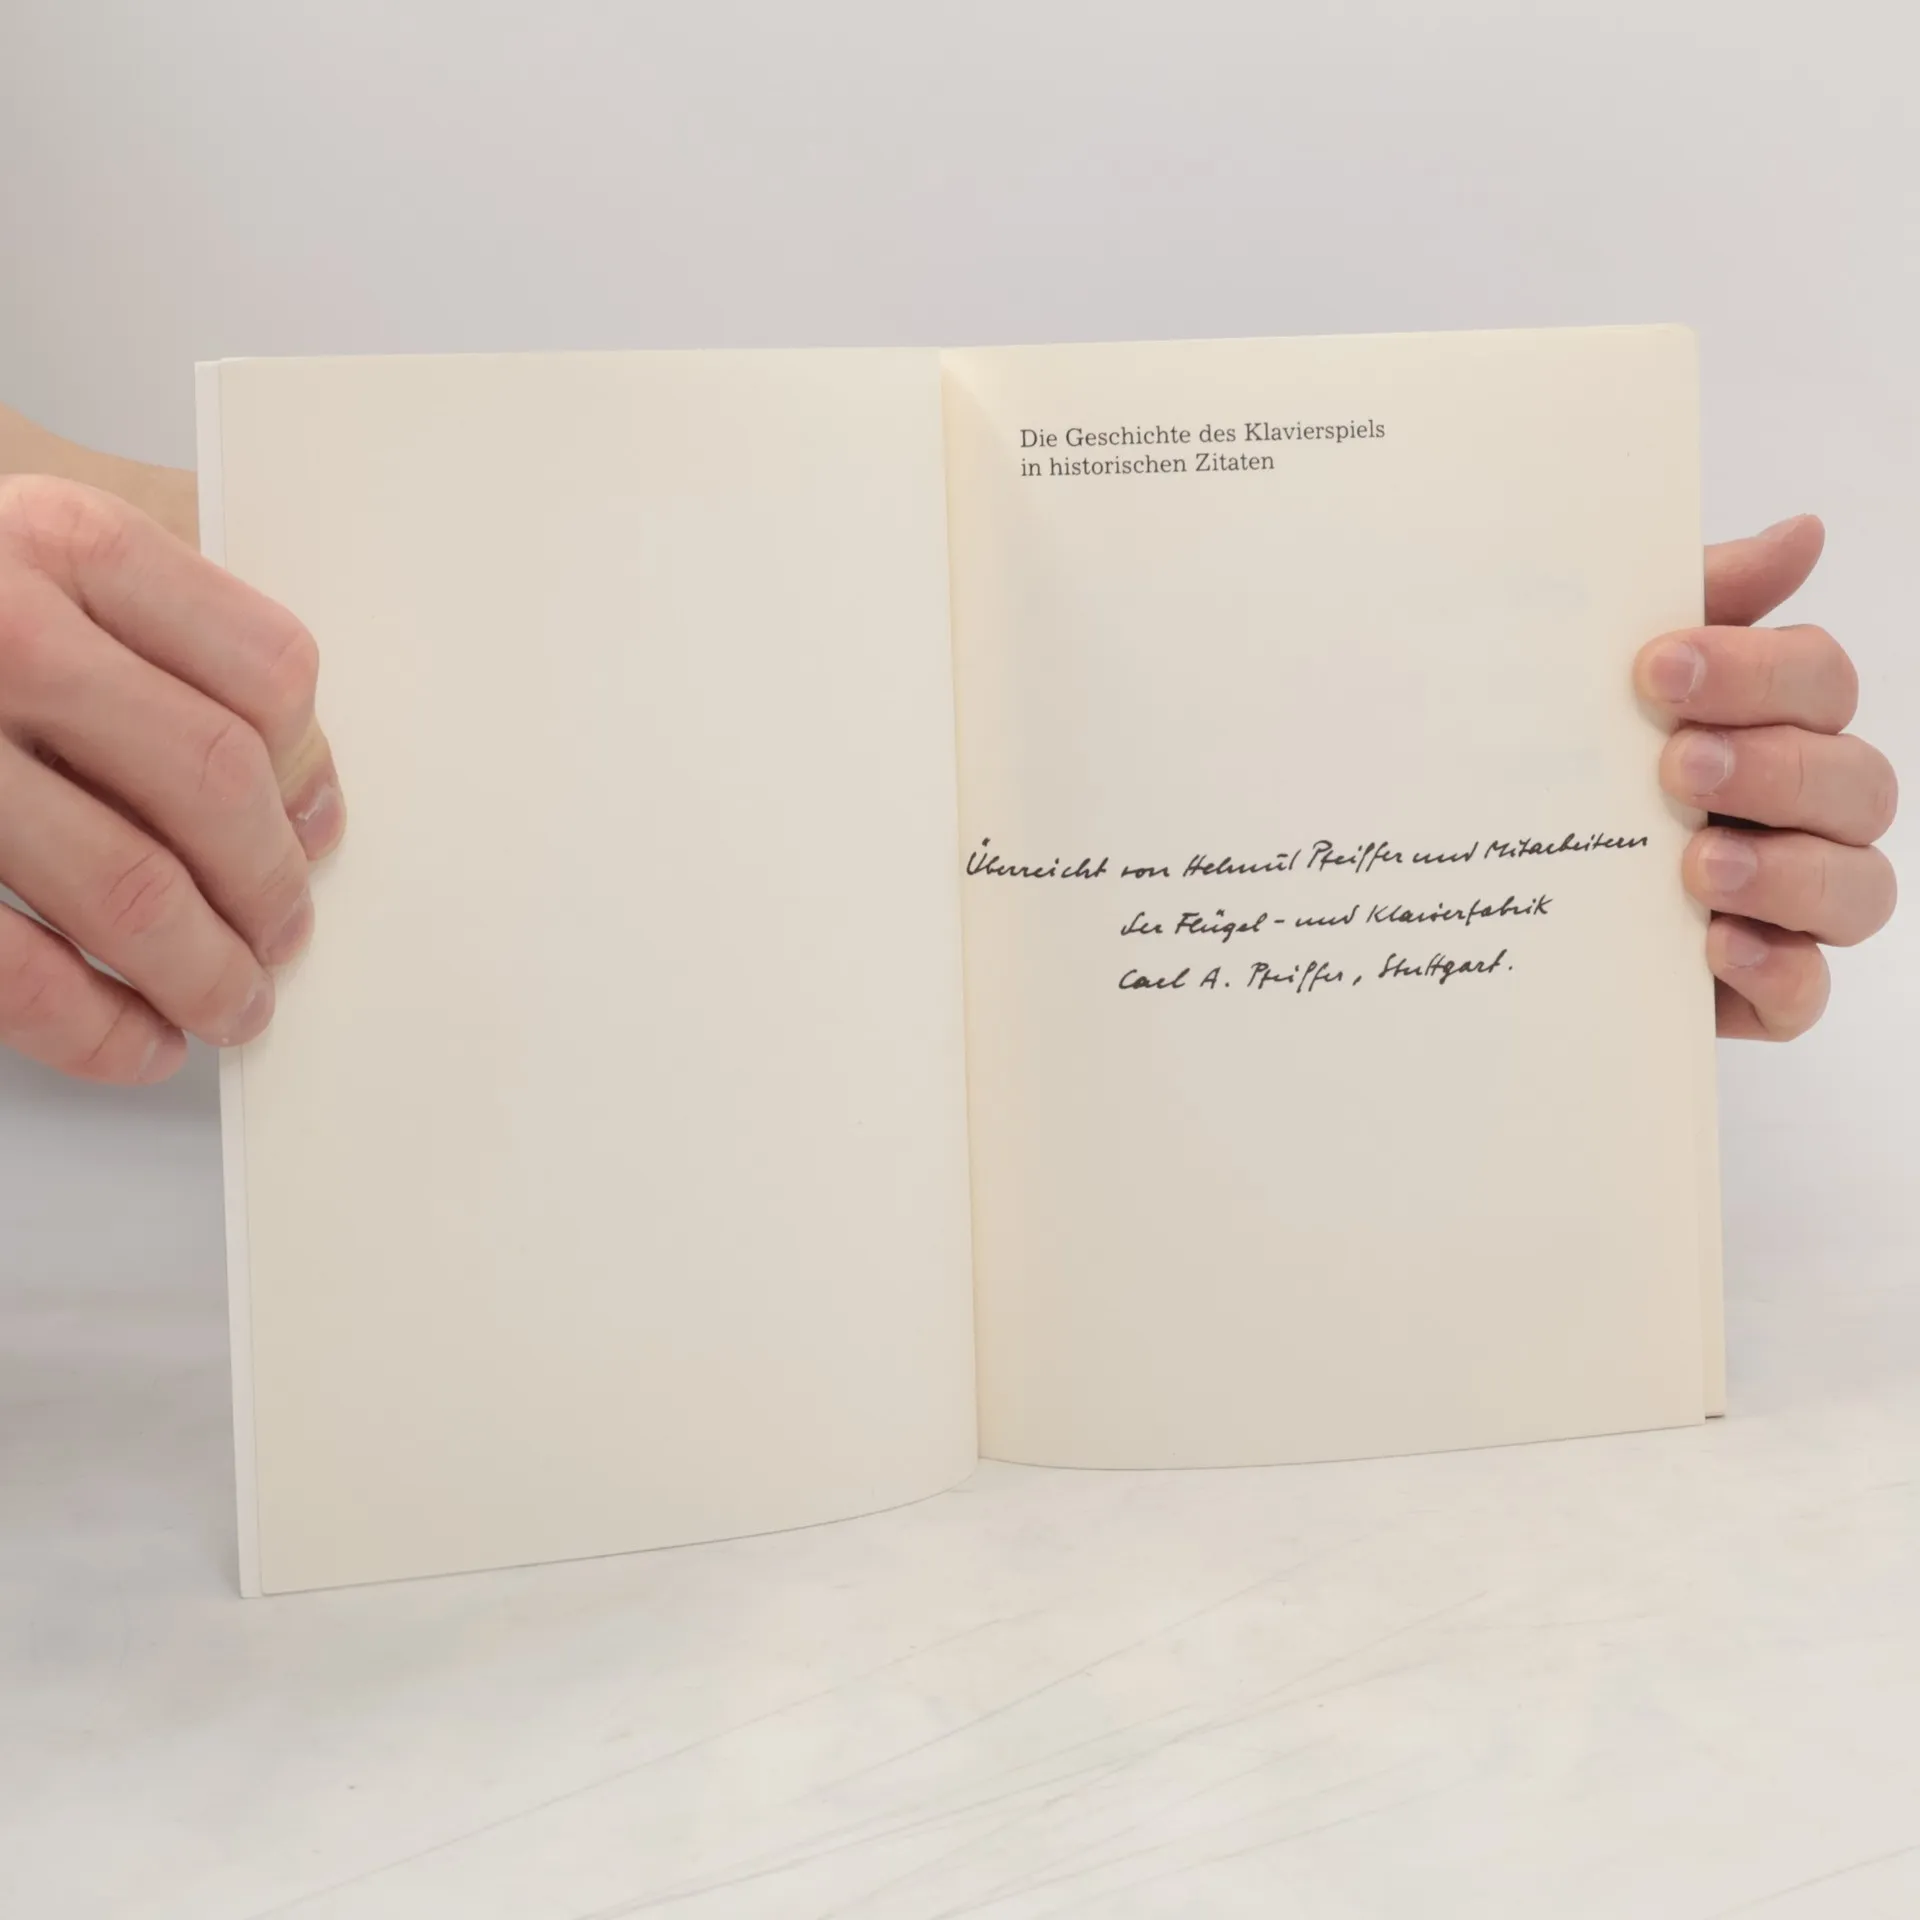 Die Geschichte des Klavierspiels
in historischen Zitaten
Überreicht von Helmut Pfeiffer und Mitarbeitern
der Flügel- und Klavierfabrik
Carl A. Pfeiffer, Stuttgart.